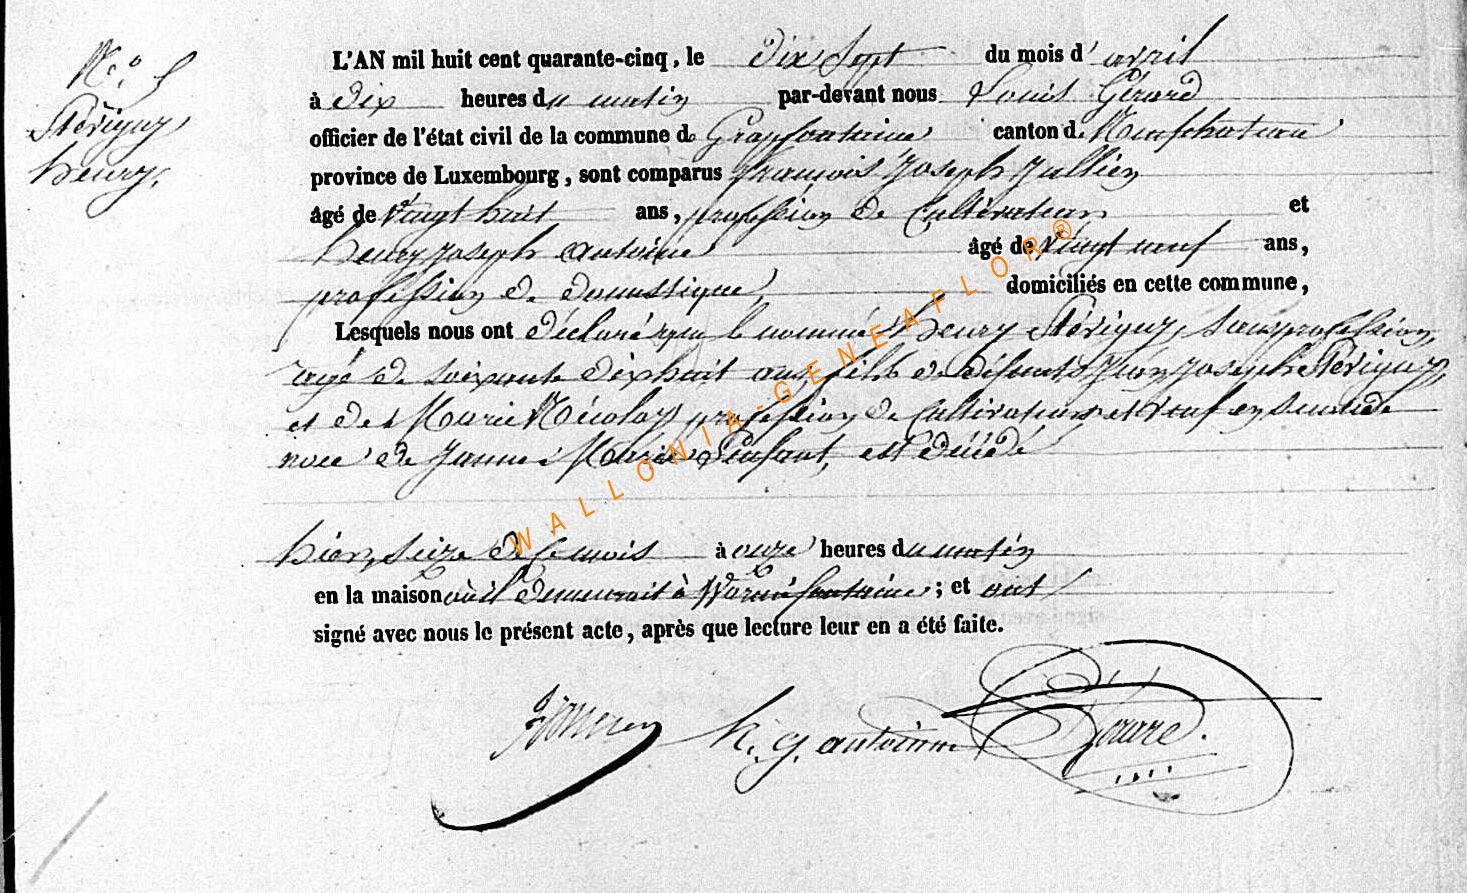 N.° 5
Stévigny
henry.
L'AN mil huit cent quarante-cinq, le dix Sept du mois d'avril
à dix heures du matin par-devant nous Louis Gérard
officier de l'état civil de la commune de Grapfontaine canton de Neufchateau
province de Luxembourg, sont comparus françois Joseph Jullien
âgé de vingt huit ans, profession de Cultivateur et
henry joseph antoine âgé de vingt neuf ans,
profession de domestique, domiciliés en cette commune,
Lesquels nous ont déclaré que le nommé henry Stévigny, sans profession,
agé de soixante dixhuit ans, fils de défunts jean joseph Stévigny,
et de Marie Nicolay profession de Cultivateurs et veuf en seconde
noce de Jeanne Marie Pinsart, est décédé
hier, seize de ce mois à onze heures du matin
en la maison où il demeurait à Warmifontaine; et ont
signé avec nous le présent acte, après que lecture leur en a été faite.
h. j. antoinne
Gérard.
WALLONIA-GENEAFLOR®